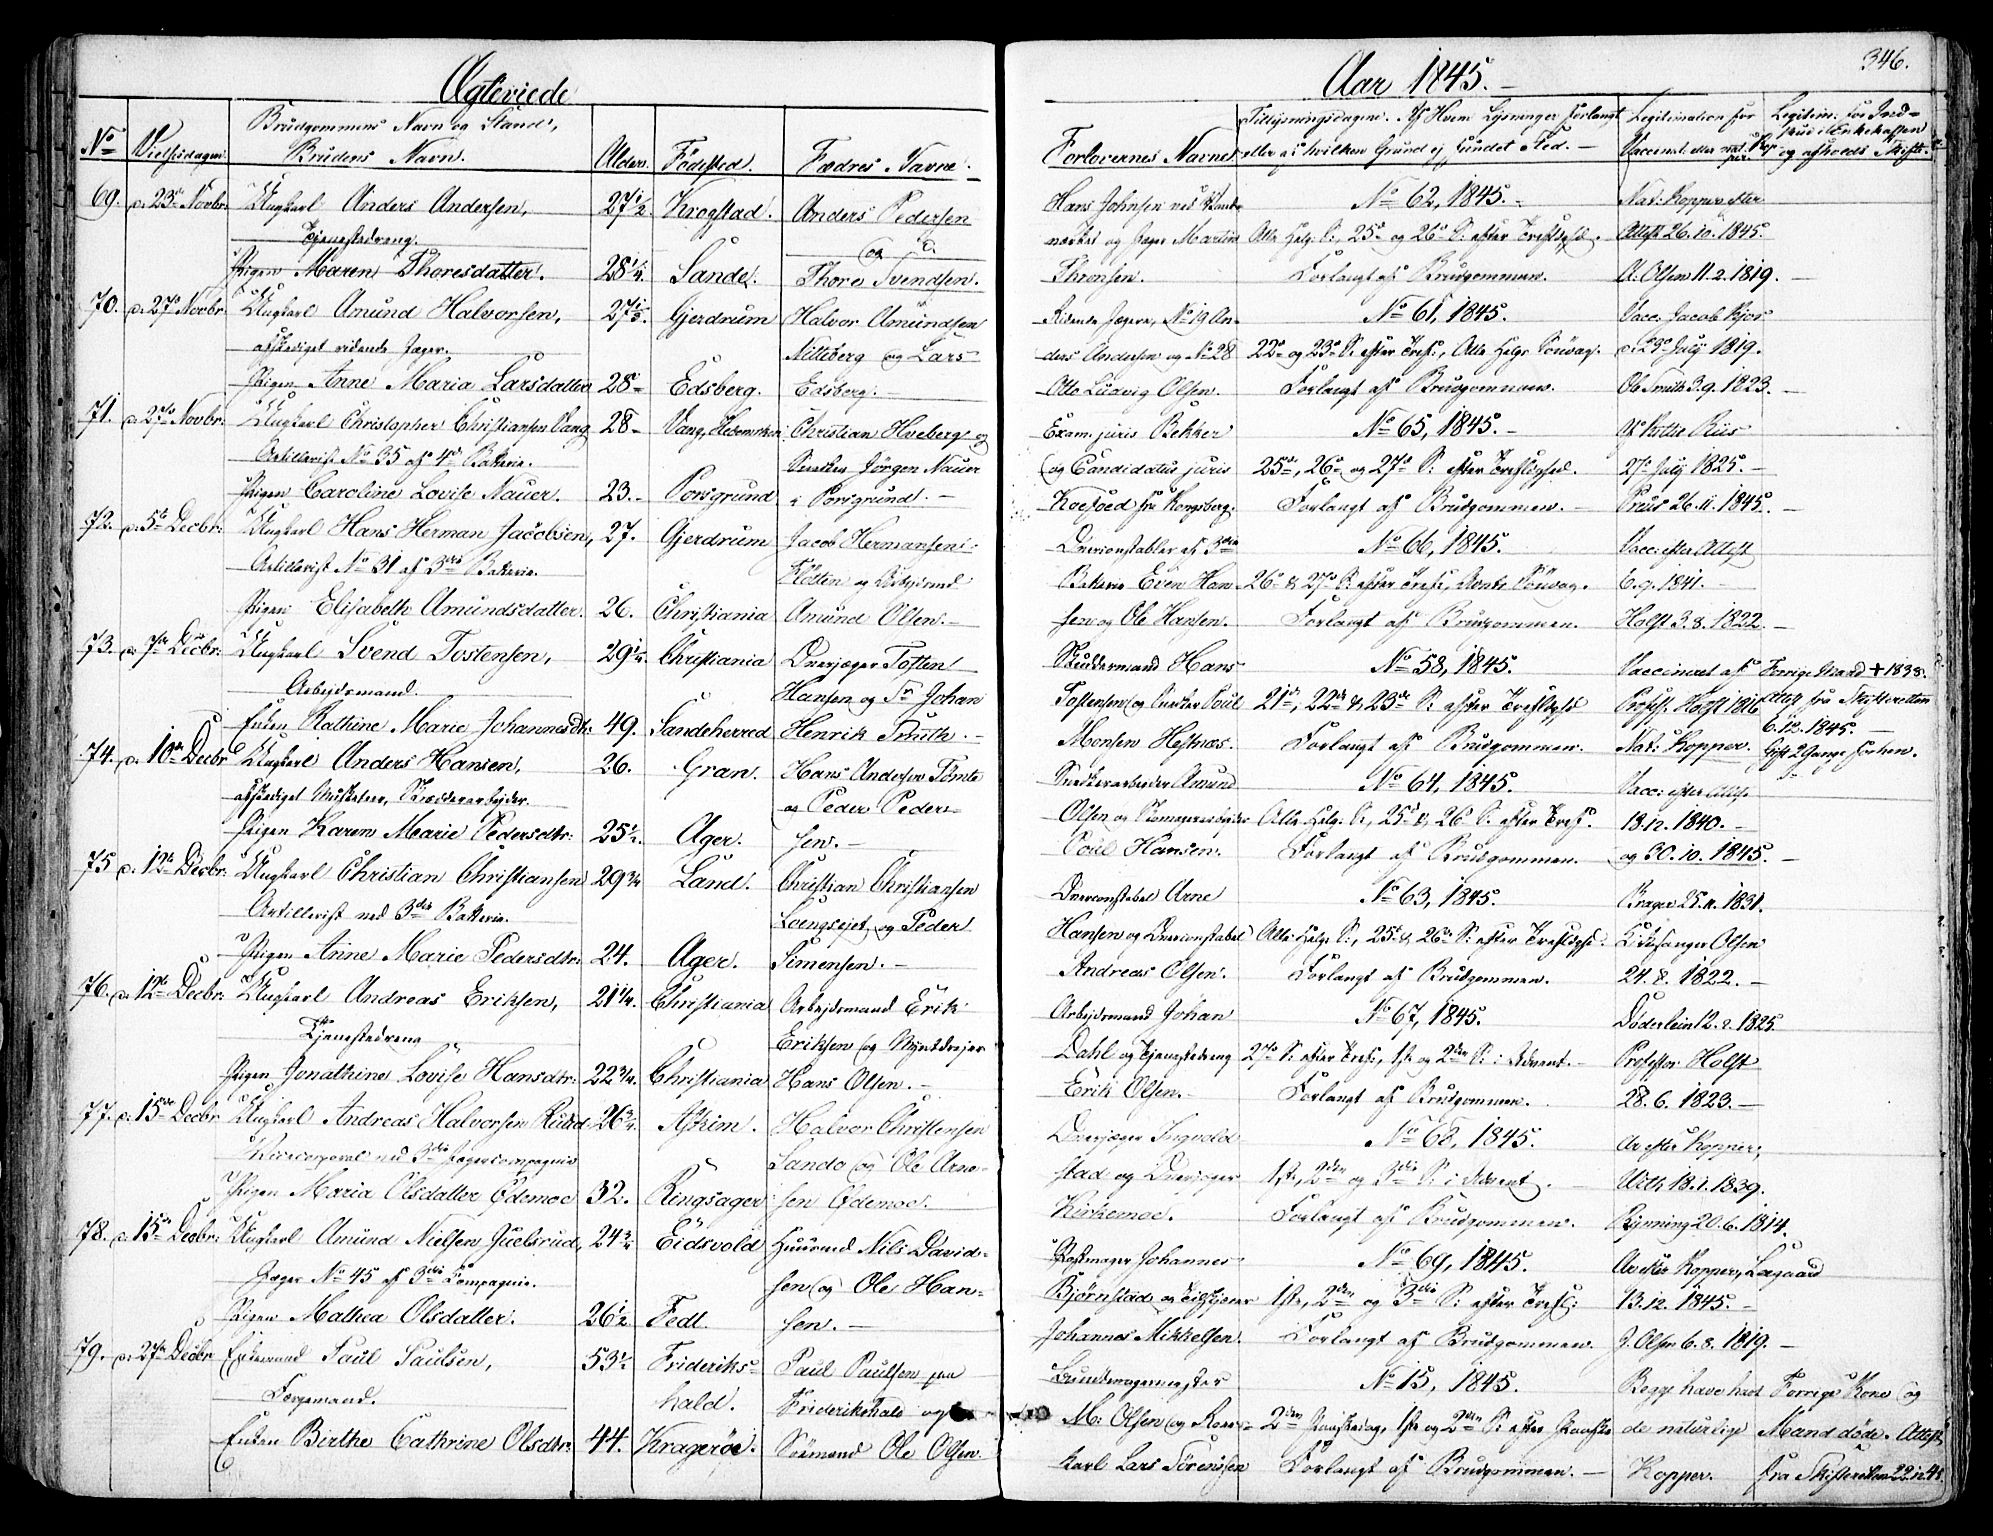 Ægteviede
No
Vielsesdagen
Brudgommens Navn og Stand,
Brudens Navn.
Alder.
Fødested.
Fædres Navne.
69. d. 23de Novbr. Ungkarl Anders Andersen, 27 1/2 Krogstad. Anders Pedersen
Tjenestedreng. og
Pigen Maren Thoresdatter. 28 1/4. Sande. Thore Svendsen.
70. d. 27de Novbr. Ungkarl Amund Halvorsen, Gjerdrum Halvor Amundsen
afskediget ridende Jæger. Nitteberg og Lars
Pigen Anne Maria Larsdatter 28 Edsberg. Edsberg.
71. d. 27de Novbr. Ungkarl Christopher Christiansen Vang 28 Vang, Hedemarken Christian Hveberg og
Artillerist No 35 af 4de Batterie. Jørgen Nauer
Pigen Caroline Lovise Nauer. 23. Porsgrund i Porsgrund.
72. d. 5te Decbr: Ungkarl Hans Herman Jacobsen, 27. Gjerdrum Jacob Hermansen
Artillerist No 31 af 3die Batterie. og Arbejdsmand
Pigen Elisabeth Amundsdatter. 26. Christiania Amund Olsen.
73. d. 7de Decbr: Ungkarl Svend Tostensen, 29 1/4. Christiania Overjæger Tosten
Arbejdsmand. Hansen og Johan
Enken Kathine Marie Johannesdtr: 49. Sandeherred Henrik Smith.
74. d. 10de Decbr Ungkarl Anders Hansen, 26. Gran. Hans Andersen Tømte
afskediget Musketeer, Skrædderarbejder. og Peder Peder-
Pigen Karen Marie Pedersdtr: 25 1/2. Ager. sen.
75 d. 12te Decbr: Ungkarl Christian Christiansen 29 3/4 Land. Christian Christiansen
Artillerist ved 3die Batterie. Loengsejet og Peder
Pigen Anne Marie Pedersdtr: 24. Ager. Simensen.
76. d. 12te Decbr: Ungkarl Andreas Eriksen, 21 1/4. Christiania Arbejdsmand Erik
Tjenestedreng Eriksen og Myntdrejer
Pigen Jonathine Lovise Hansdtr: 22 3/4. Christiania Hans Olsen.
77. d. 15de Decbr Ungkarl Andreas Halvorsen Ruud 26 3/4 Askim. Halvor Christensen
Vicecorporal ved 3die Jægercompagnie Sando og Ole Arne-
Pigen Maria Olsdatter Ødemoe 32. Ringsager sen Ødemoe.
78. d. 15de Decbr: Ungkarl Amund Nielsen Juelsrud, 24 3/4 Eidsvold Huusmd Nils David-
Jæger No 45 af 3die Compagnie. sen og Ole Han-
Pigen Mathea Olsdatter. 26 1/2 Fedt. sen.
79. d. 27de Decbr Enkemand Paul Paulsen, 53 1/2 Frideriks- Paul Paulsen paa
Færgemand. hald. Friderikshald og
Enken Birthe Cathrine Olsdtr: 44. Kragerøe. Sømand Ole Olsen.
Aar 1845.
346.
Forlovernes Navne
Tillysningsdagene. Af Hvem Lysninger forlangt
eller af hvilken Grund ej fundet Sted.
Legitimation for
Vaccinat. eller nat. Kop
per
Legitim. for Ind-
trud i Enkekassen
og afholdt Skifte.
Hans Johnsen ved No 62, 1845. Nat: Kopper efter
og Jæger Martin Alle Helg: S:, 25de og 26de S: efter Trefldgsf. Attest 26.10.1845.
Thronsen. Forlangt af Brudgommen. A. Olsen 11.2.1819.
Ridende Jægere, No 19 An- No 61, 1845. Vacc: Jacob Kjos
ders Andersen og No 28 22de og 23de S: efter Tref:, Alle Helg: Søndag. d. 23de July 1819.
Otto Ludvig Olsen. Forlangt af Brudgommen. Ob Smith 3.9.1823.
Exam. juris Bekker No 65, 1845. Riis
og Candidatus juris 25de, 26de og 27de S: efter Trefldgsf. 27de July 1825.
Koefoed fra Kongsberg. Forlangt af Brudgommen. Preus 26.11.1845.
Overconstabler af 3die No 66, 1845. Vacc: efter Attest
Batterie Even Han- 26de & 27de S: efter Tref:, Advents Søndag. 6.9.1841.
sen og Ole Hansen. Forlangt af Brudgommen. Holst 3.8.1822.
Hans No 58, 1845. Vaccineret af Forrige Mand + 1838.
Tostensen og Poul 21de, 22de & 23de S: efter Trefldgsf Profess. Holst 1816 Attest fra Skifteretten
Monsen Hestnæs. Forlangt af Brudgommen. Nat: Kopper. 6.12.1845.
Gift 2 Gange forhen.
Snedkerarbeider Amund No 64, 1845. Vacc: efter Attest
Olsen og Alle Helg: S:, 25de & 26 S: efter Tref. 18.12.1840.
Poul Hansen. Forlangt af Brudgommen. og 30.10.1845.
Overconstabel Arne No 63, 1845. Brager 25.11.1831.
Hansen og Overconstabel Alle Helge S:, 25de & 26de S: efter Trefldgsf. Kirkesanger Olsen
Andreas Olsen. Forlangt af Brudgommen. 24.8.1822.
Arbejdsmand Johan No 67, 1845. Døderlein 12.2.1825
Dahl og Tjenestedreng 27de S: efter Tref:, 1ste og 2den S: i Advent. Professor Holst
Erik Olsen. Forlangt af Brudgommen. 28.6.1823.
Overjæger Ingvold- No 68, 1845. Ar efter Kopper,
stad og Overjæger 1ste, 2den og 3die S: i Advent. 18.1.1839.
Kirkemoe. Forlangt af Brudgommen. Rynning 20.6.1814.
Johannes No 69, 1845. Ar efter Kopper, Lægaard
Bjørnstad og 1ste, 2den og 3die S: efter Tref: 13.12.1845.
Johannes Mikkelsen. Forlangt af Brudgommen. J. Olsen 6.8.1819.
No 15, 1845. Begge have havt Forrige Kone og
M: Olsen og 2den Paaskedag, 1ste og 2den S: efter Paaske de naturlige Mand døde. Attest
Karl Lars Sørenssen Forlangt af Brudgommen. Kopper. fra Skifteretten 22.12.45.